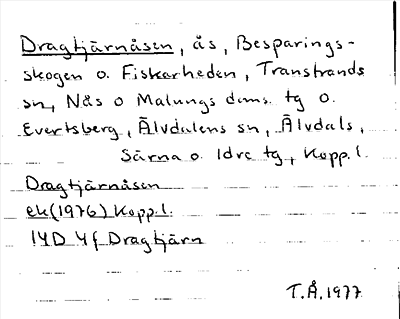 Dragtjärnåsen, ås, Besparings-
skogen o. Fiskarheden, Transtrands
sn, Nås o Malungs doms. tg o.
Evertsberg, Älvdalens sn, Älvdals,
Särna o. Idre tg, Kopp. l.
Dragtjärnåsen
ek(1976) Kopp. l.
14D 4f Dragtjärn
T.Å. 1977